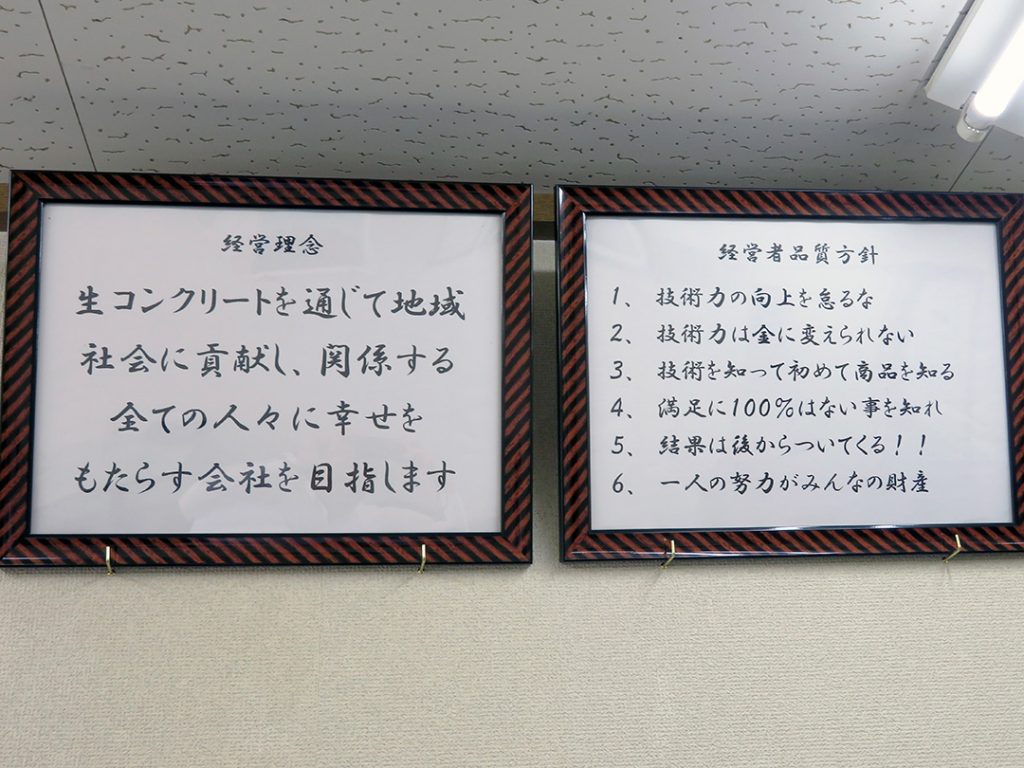 経営理念
生コンクリートを通じて地域
社会に貢献し、関係する
全ての人々に幸せを
もたらす会社を目指します
経営者品質方針
1、 技術力の向上を怠るな
2、 技術力は金に変えられない
3、 技術を知って初めて商品を知る
4、 満足に100%はない事を知れ
5、 結果は後からついてくる！！
6、 一人の努力がみんなの財産